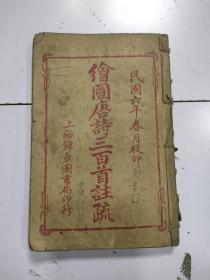 民國六年春月校印
繪圖唐詩三百首註疏
上海錦章圖書局印行